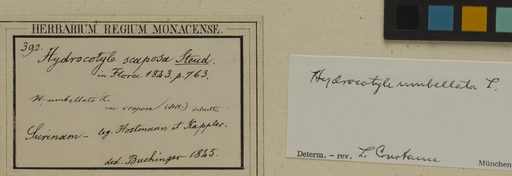 HERBARIUM REGIUM MONACENSE.
392.
Hydrocotyle scaposa Steud.
in Flora 1843, p. 763.
H. umbellata L.
var scaposa
Surinam – leg. Hostmann et Kappler.
ded. Buchinger 1845.
Hydrocotyle umbellata L.
Determ. – rev. L. Constance
München